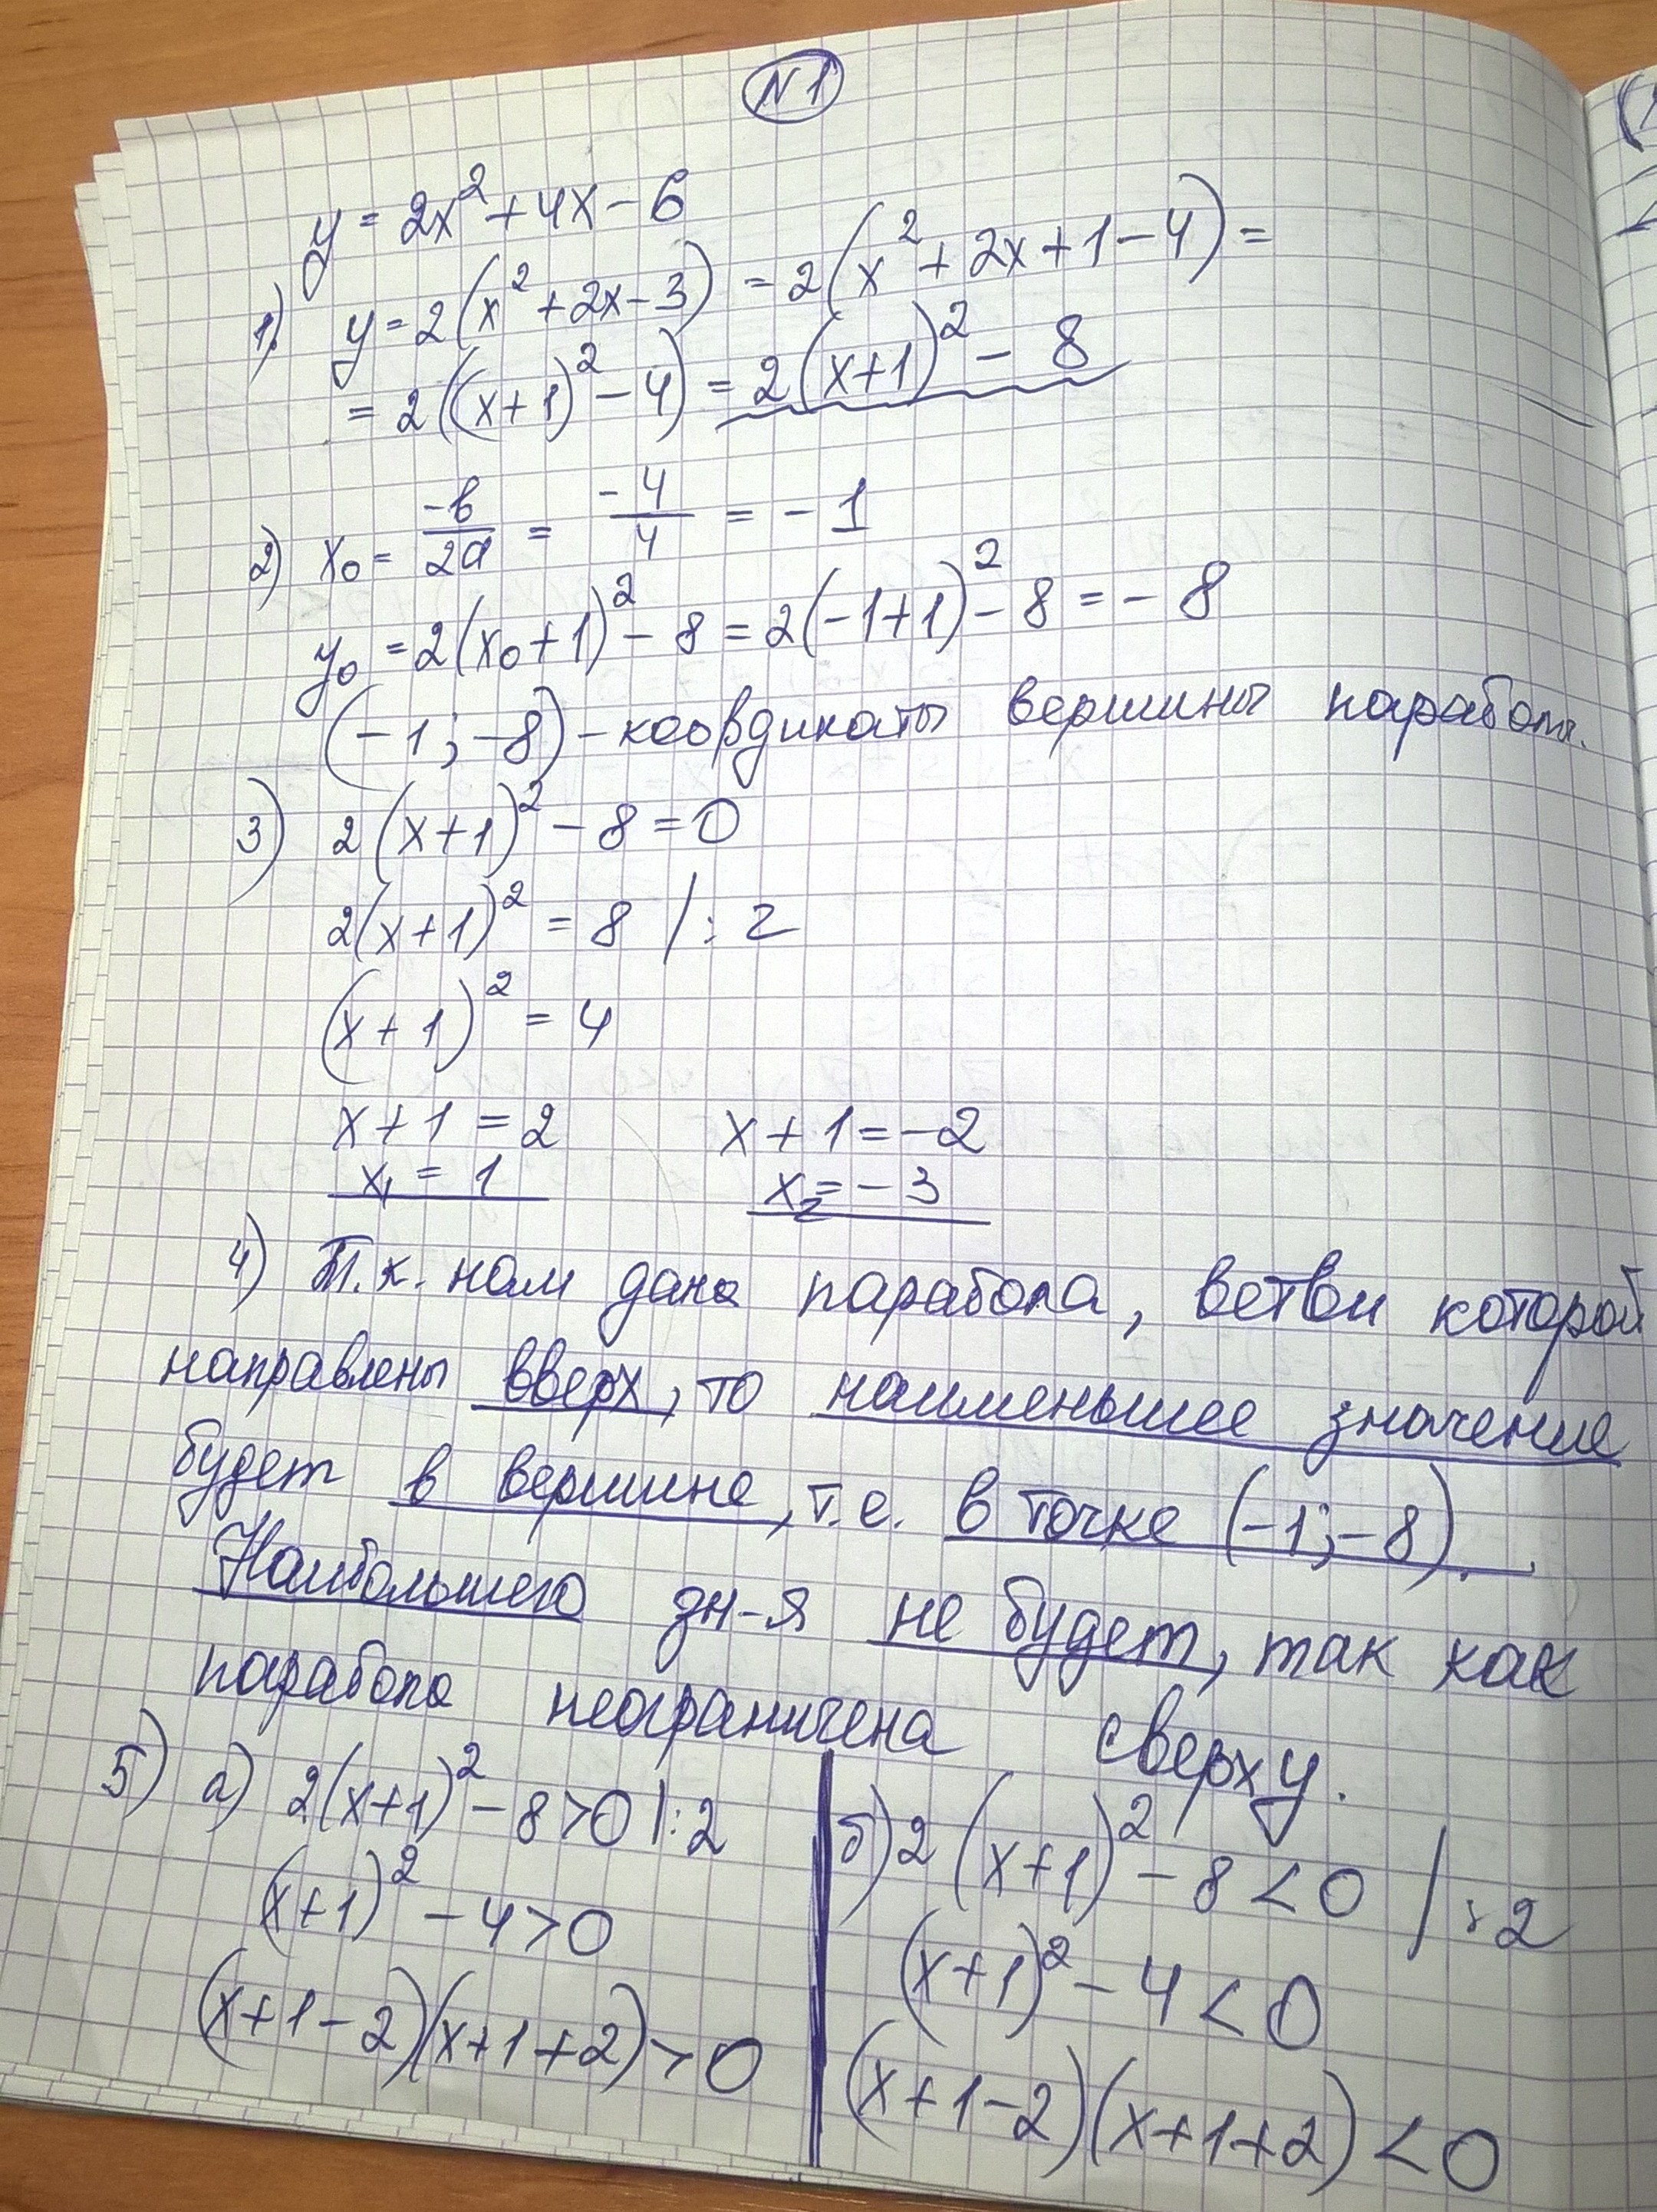 N1
y = 2x² + 4x - 6
1) y = 2(x² + 2x - 3) = 2(x² + 2x + 1 - 4) =
= 2((x+1)² - 4) = 2(x+1)² - 8
2) x₀ = -b/2a = -4/4 = -1
y₀ = 2(x₀+1)² - 8 = 2(-1+1)² - 8 = -8
(-1; -8) - координаты вершины параболы.
3) 2(x+1)² - 8 = 0
2(x+1)² = 8 | : 2
(x+1)² = 4
x + 1 = 2 x + 1 = -2
x₁ = 1 x₂ = -3
4) Т.к. нам дана парабола, ветви которой
направлены вверх, то наименьшее значение
будет в вершине, т.е. в точке (-1; -8).
Наибольшего зн-я не будет, так как
парабола неограничена сверху.
5) а) 2(x+1)² - 8 > 0 | : 2
(x+1)² - 4 > 0
(x+1-2)(x+1+2) > 0
б) 2(x+1)² - 8 < 0 | : 2
(x+1)² - 4 < 0
(x+1-2)(x+1+2) < 0